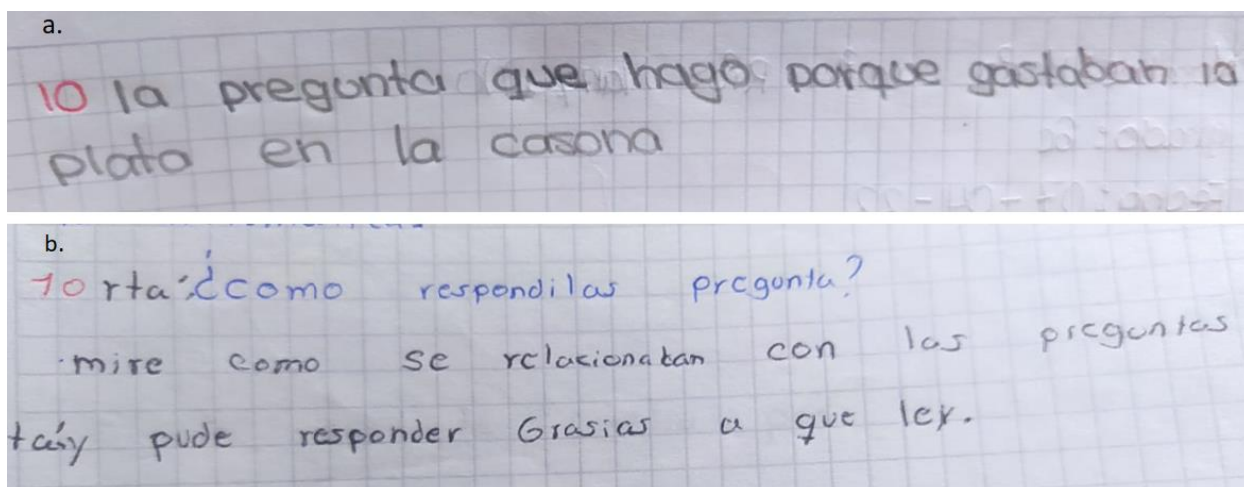 a.
10 la pregunta que hago porque gastaban la
plata en la casona
b.
10 rta: ¿como respondilas pregonta?
mire como se relacionaban con las preguntas
y pude responder Grasias a que ley.